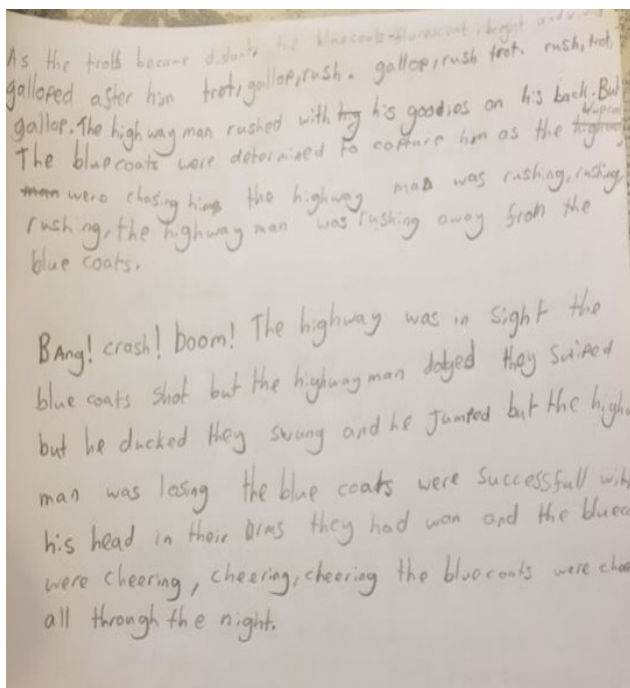 As the trots became distant, the bluecoats-flurescent, bright and
galloped after him trot, gallop, rush. gallop, rush trot. rush, trot,
gallop. The high way man rushed with his goodies on his back. But
The bluecoats were determined to capture him as the bluecoats
were chasing him the highway man was rushing, rushing,
rushing, the highway man was rushing away from the
blue coats.
BAng! crash! boom! The highway was in sight the
blue coats shot but the highway man dodged they swiped
but he ducked they swung and he jumped but the high
man was losing the blue coats were successfull with
his head in their arms they had won and the bluec
were cheering, cheering, cheering the bluecoats were chee
all through the night.